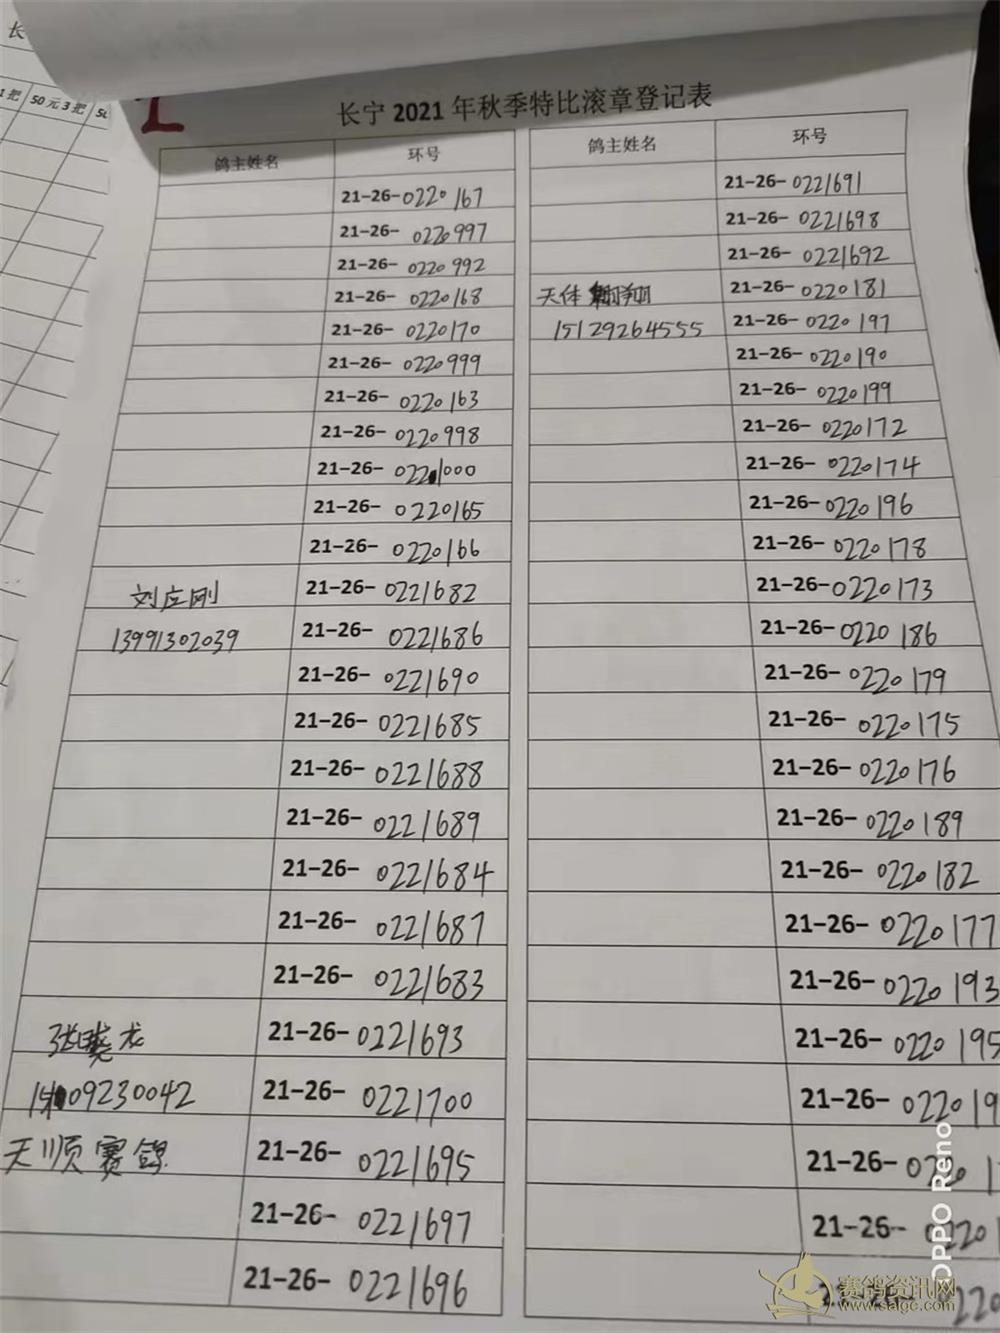 长
1把 50元3把
长宁 2021 年秋季特比滚章登记表
鸽主姓名 环号
21-26-0220167
21-26-0220997
21-26-0220992
21-26-0220168
21-26-0220170
21-26-0220999
21-26-0220163
21-26-0220998
21-26-0221000
21-26-0220165
21-26-0220166
刘应刚 21-26-0221682
13991302039 21-26-0221686
21-26-0221690
21-26-0221685
21-26-0221688
21-26-0221689
21-26-0221684
21-26-0221687
21-26-0221683
张晓龙 21-26-0221693
09230042 21-26-0221700
天顺赛鸽 21-26-0221695
21-26-0221697
21-26-0221696
鸽主姓名 环号
21-26-0221691
21-26-0221698
21-26-0221692
天体翱翔 21-26-0220181
15129264555 21-26-0220197
21-26-0220190
21-26-0220199
21-26-0220172
21-26-0220174
21-26-0220196
21-26-0220178
21-26-0220173
21-26-0220186
21-26-0220179
21-26-0220175
21-26-0220176
21-26-0220189
21-26-0220182
21-26-0220177
21-26-0220193
21-26-0220195
21-26-022019
21-26-0220
21-26-0220
OPPO Reno
赛鸽资讯网
www.saigc.com